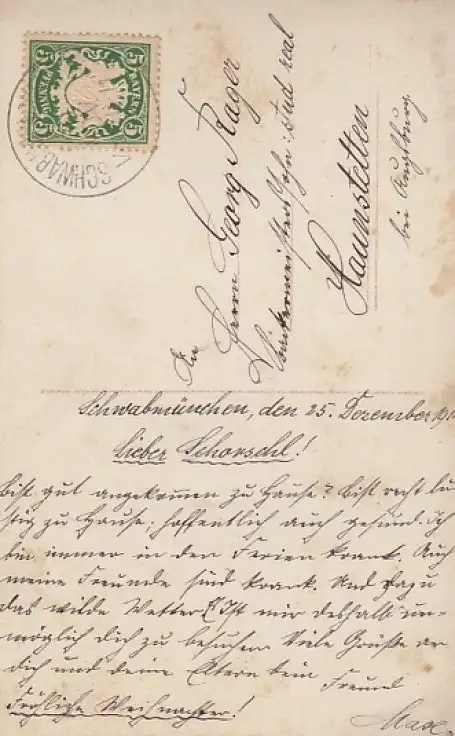 BAYERN
5 5
5 5
PFENNIG
SCHWAB
An
Herrn Georg Rager
stud real
Haunstetten
bei Augsburg.
Schwabmünchen, den 25. Dezember 19
Lieber Schorschl!
Bist gut angekommen zu Hause? Bist recht lu-
stig zu Hause; hoffentlich auch gesund. Ich
bin immer in den Ferien krank. Auch
meine Freunde sind krank. Und dazu
das wilde Wetter! Ist mir deshalb un-
möglich dich zu besuchen. Viele Grüße an
dich und deine Eltern dein Freund
Fröhliche Weihnachten!
Max.